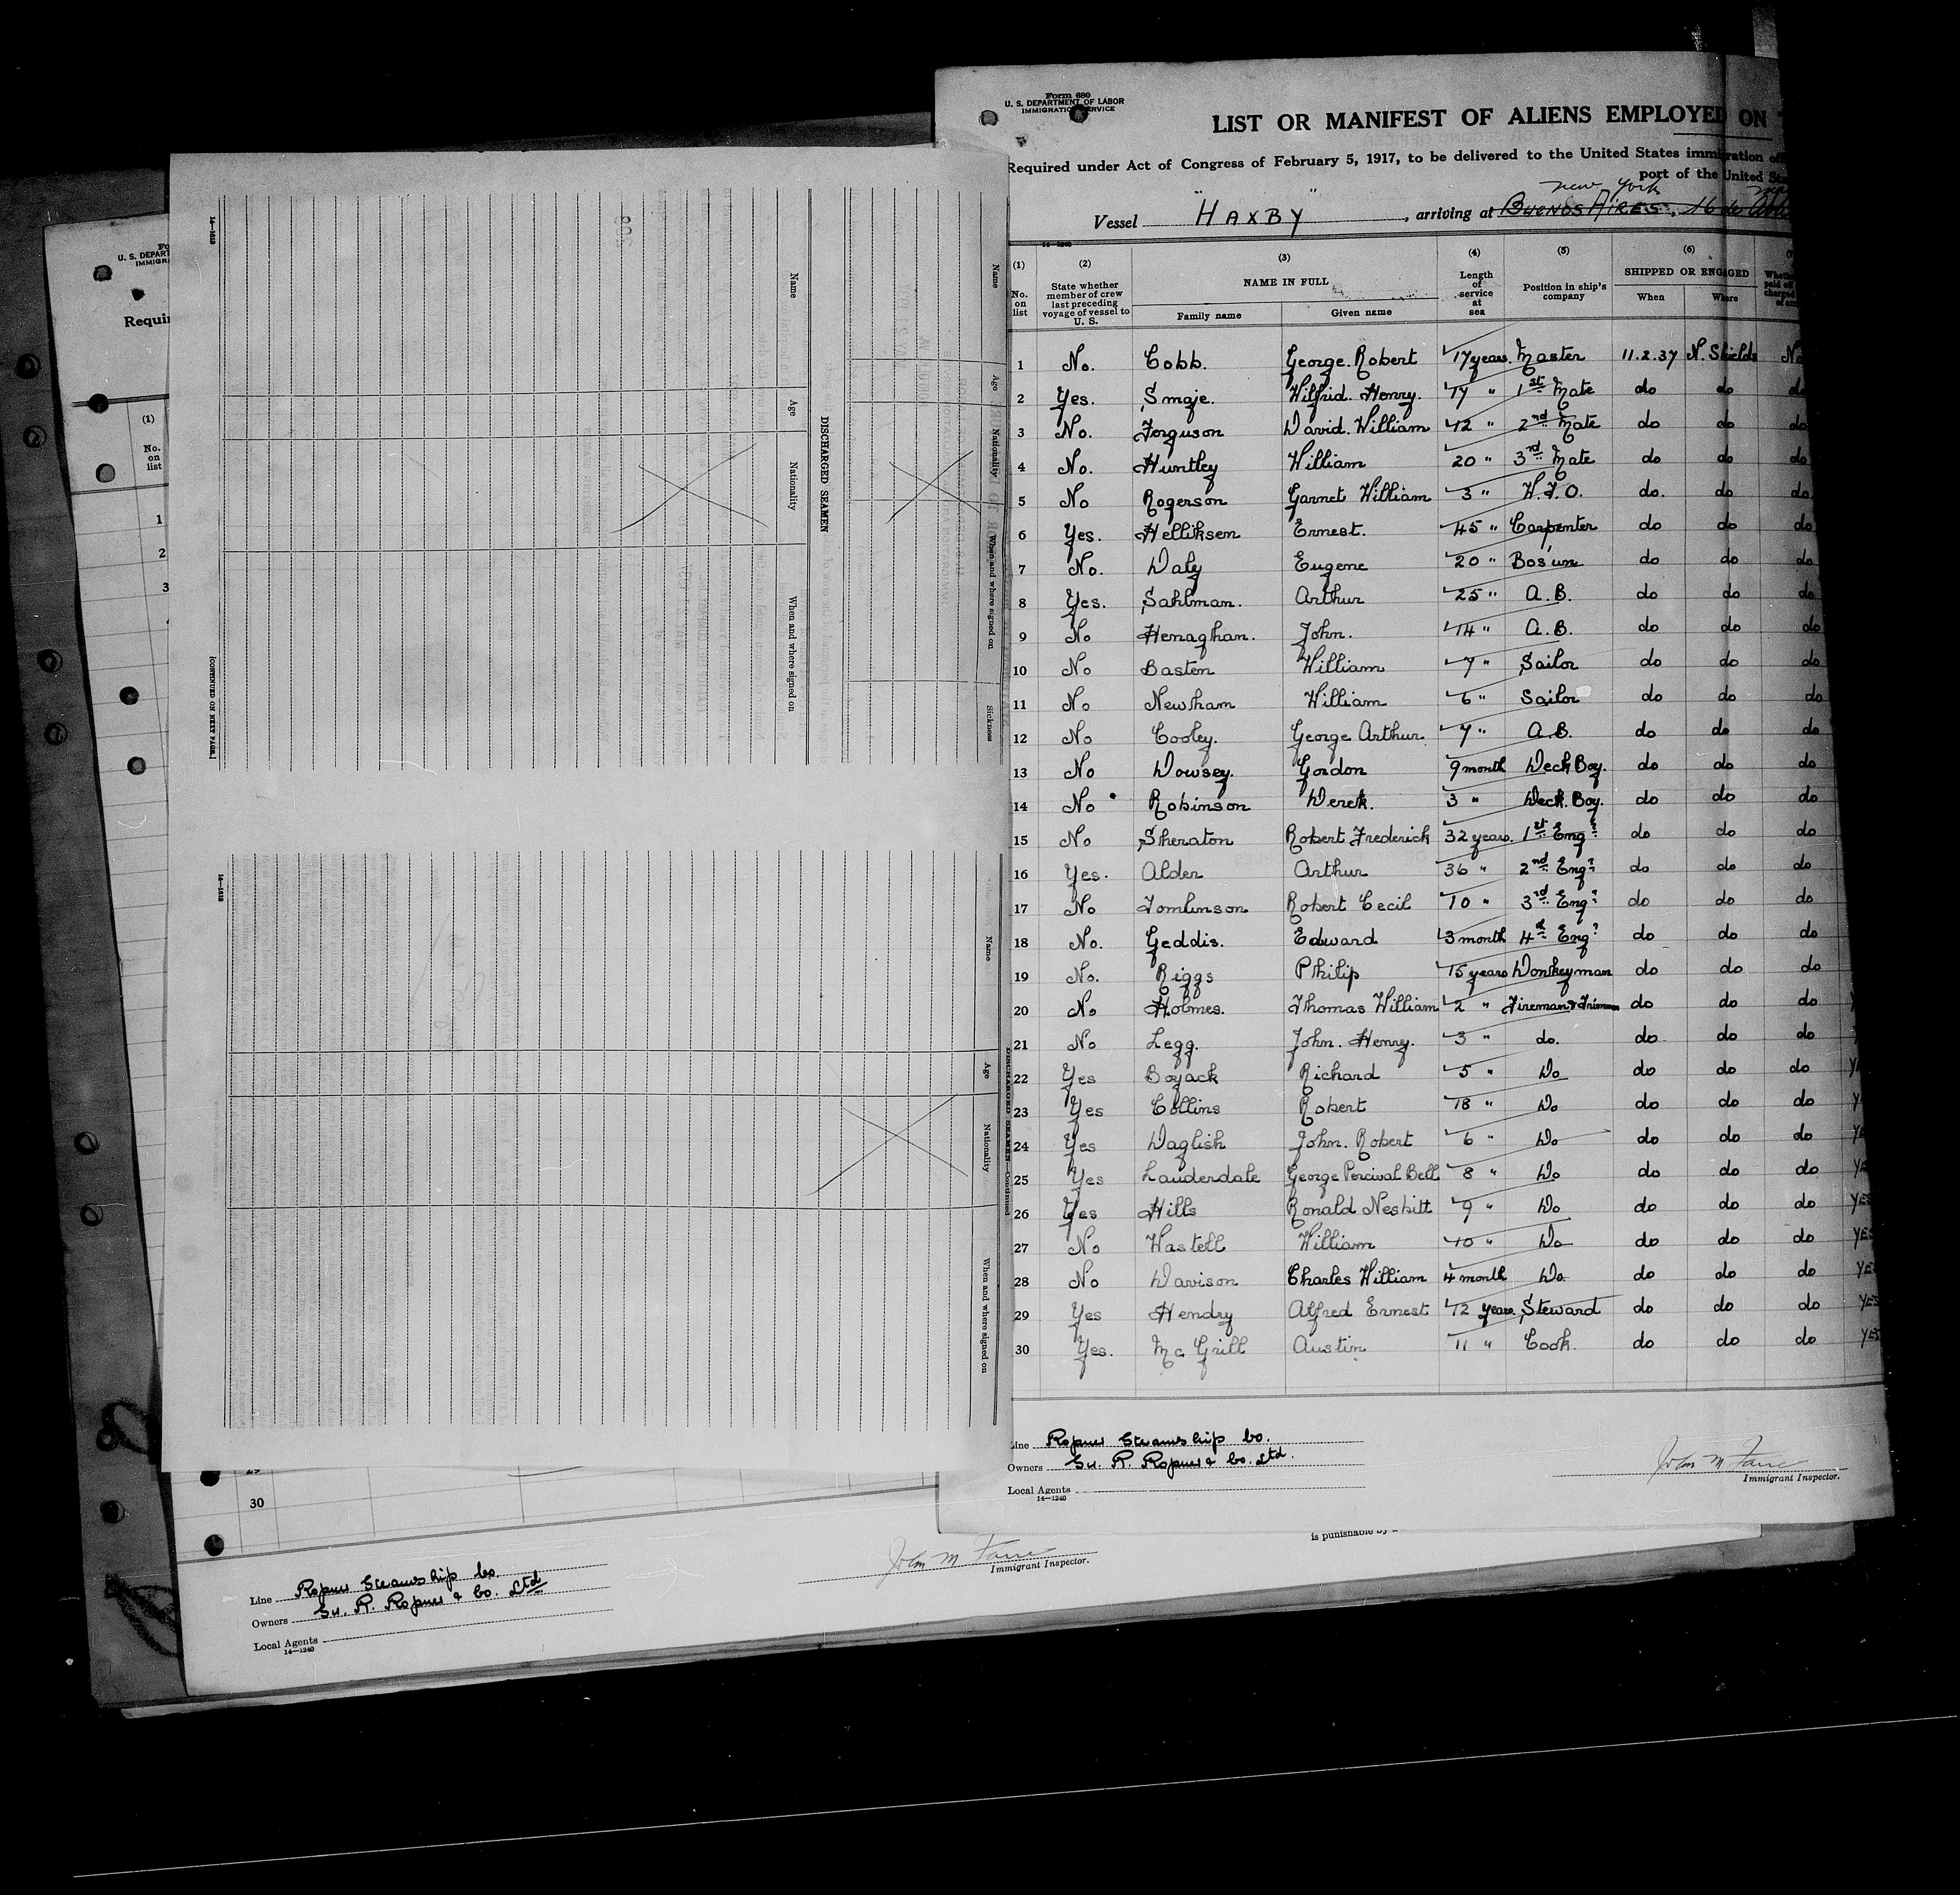 Form 680
U. S. DEPARTMENT OF LABOR
IMMIGRATION SERVICE
LIST OR MANIFEST OF ALIENS EMPLOYED ON
Required under Act of Congress of February 5, 1917, to be delivered to the United States immigration
port of the United
new york
Vessel "HAXBY", arriving at BUENOS AIRES, 16 de
(1) (2) (3) (4) (5) (6)
No. on list State whether member of crew last preceding voyage of vessel to U. S. NAME IN FULL Length of service at sea Position in ship's company SHIPPED OR ENGAGED
Family name Given name When Where
1 No. Cobb. George. Robert 17 years. Master 11.2.37 N. Shields No
2 Yes. Smaje. Wilfrid. Henry. 17 " 1st Mate do do do
3 No. Ferguson David. William 12 " 2nd Mate do do do
4 No. Huntley William 20 " 3rd Mate do do do
5 No Rogerson Garnet William 3 " W.T.O. do. do do
6 Yes. Helliksen Ernest. 45 " Carpenter do do do
7 No. Daly Eugene 20 " Bos'un do do do
8 Yes. Sahlman. Arthur 25 " A.B. do do do
9 No Henaghan. John. 14 " A.B. do do do
10 No Basten William 7 " Sailor do do do
11 No Newham William 6 " Sailor do do do
12 No Cooley. George Arthur. 7 " A.B. do do do
13 No Dowsey. Gordon 9 month Deck Boy. do do do
14 No Robinson Derek. 3 " Deck. Boy. do do do
15 No Sheraton Robert Frederick 32 years. 1st Engr do do do
16 Yes. Alder Arthur 36 " 2nd Engr do do do
17 No Tomlinson Robert Cecil 10 " 3rd Engr do do do
18 No. Geddis. Edward 3 month 4th Engr do do do
19 No. Riggs Philip 15 years Donkeyman do do do
20 No Holmes. Thomas William 2 " Fireman & Trimmer do do do
21 No Legg. John. Henry. 3 " do. do do do
22 Yes Boyack Richard 5 " Do do do do
23 Yes Collins Robert 18 " Do do do do
24 Yes Daglish John. Robert 6 " Do do do do
25 Yes Lauderdale George Percival Bell 8 " Do do do do
26 Yes Hills Ronald Nesbitt 9 " Do do do do YES
27 No Wastell William 10 " Do do do do YES
28 No Davison Charles William 4 month Do. do do do YES
29 Yes Hendry Alfred Ernest 12 years. Steward do do do YES
30 Yes. Mc Grill Austin 11 " Cook. do do do YES
Line Ropner Steamship Co.
Owners Sir. R. Ropner & Co. Ltd.
Local Agents
14—1240
John M
Immigrant Inspector.
is punishable by
14—1813
[CONTINUED ON NEXT PAGE.]
Name Age Nationality When and where signed on Sickness
DISCHARGED SEAMEN
Name Age Nationality When and where signed on
14—1813
DISCHARGED SEAMEN—Continued
Name Age Nationality When and where signed on
U. S. DEPART
IMMIGRA
Requir
(1)
No. on list
1
2
3
29
30
Line Ropner Steamship Co
Owners Sir. R. Ropner & Co. Ltd
Local Agents
14—1240
John M
Immigrant Inspector.